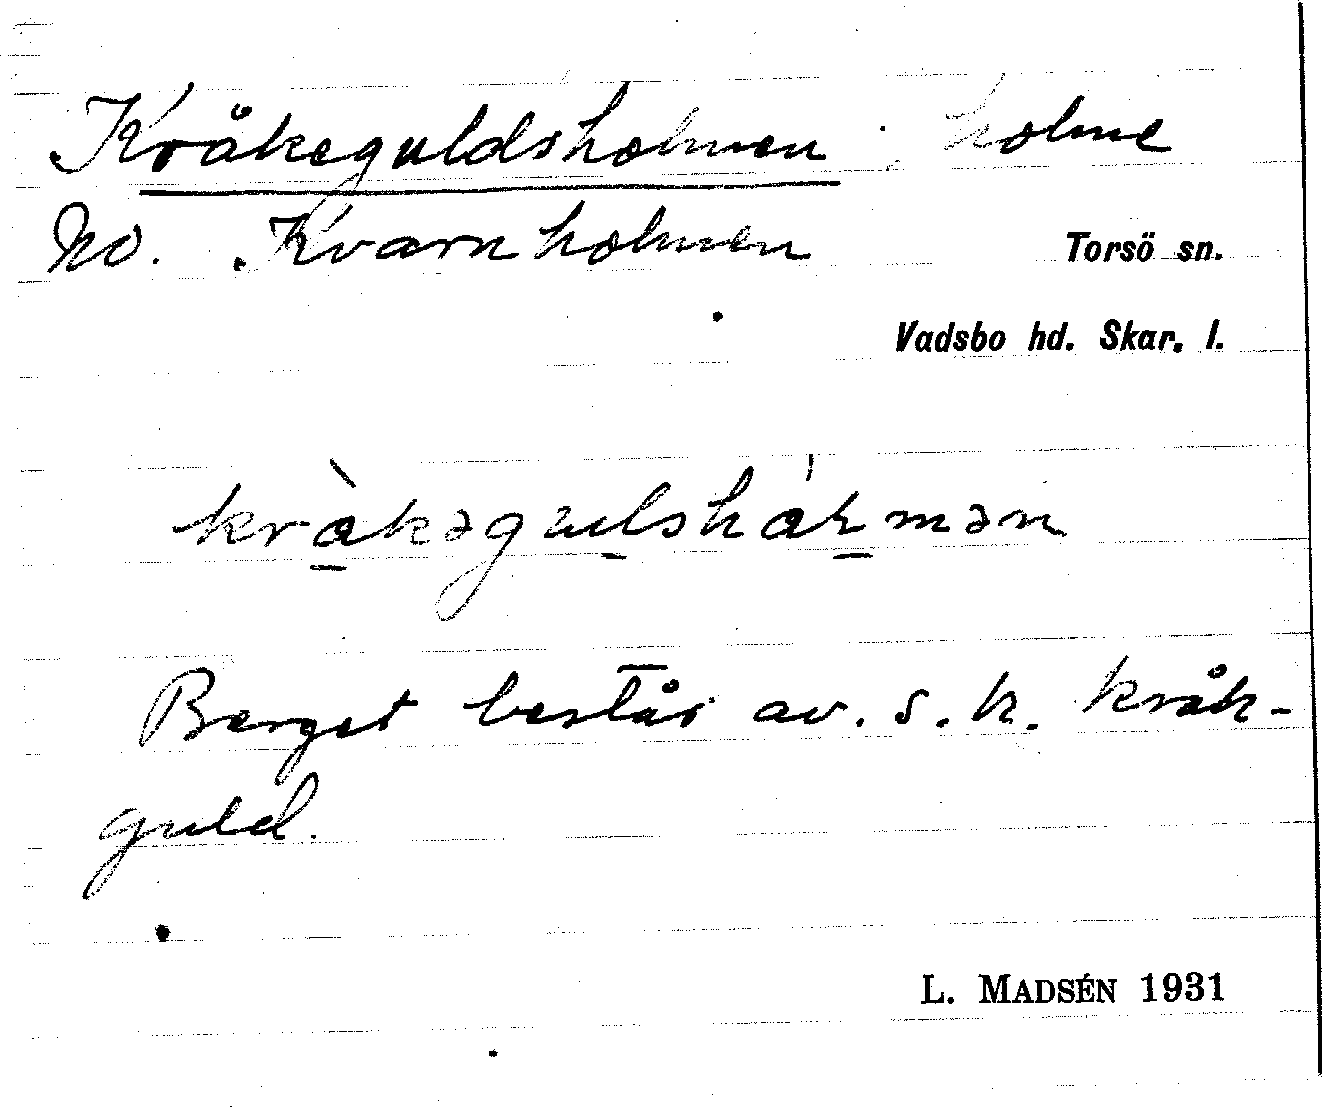 Kråkeguldsholmen holme
No. Kvarnholmen Torsö sn.
Vadsbo hd. Skar. l.
Berget består av. s. k. kråk-
guld.
L. MADSÉN 1931